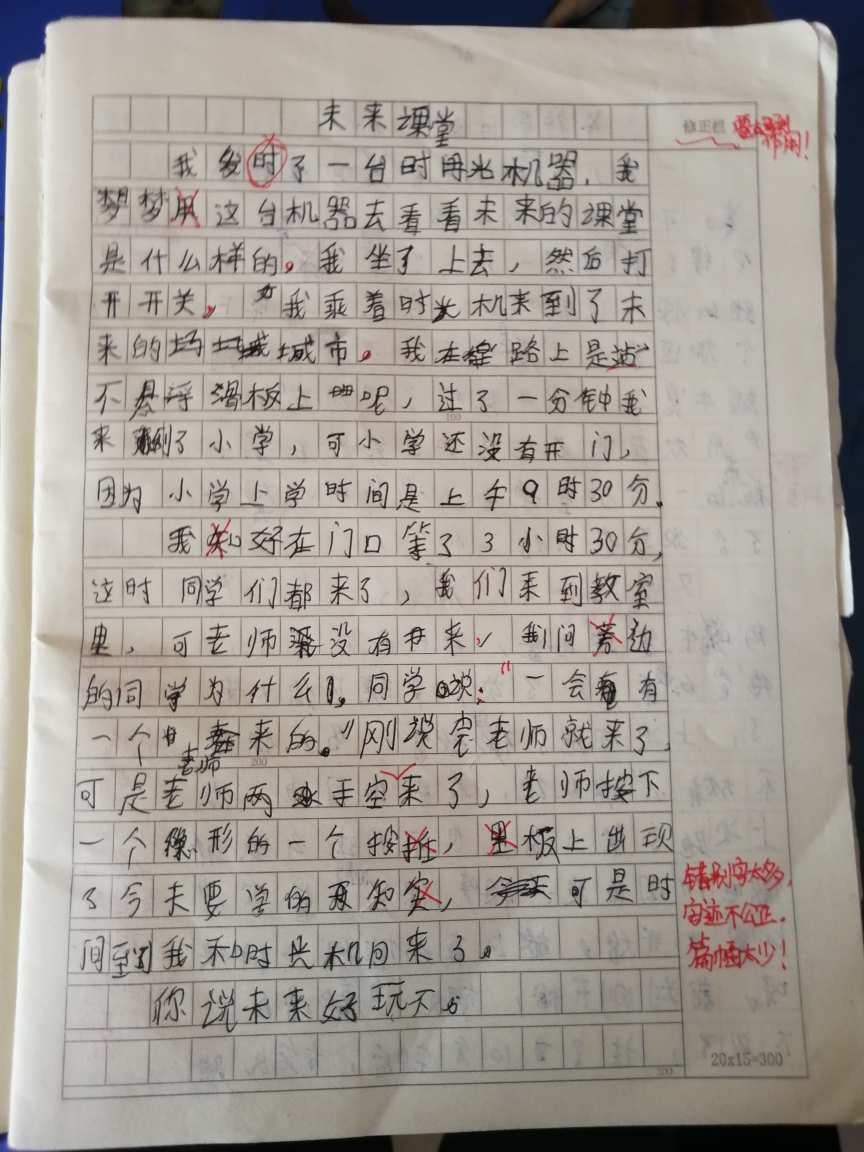 未来课堂
修正栏
作用！
我发时了一台时用光机器，我
梦梦用这台机器去看看未来的课堂
是什么样的。我坐了上去，然后打
开开关。我乘着时光机来到了未
来的城市。我在路上是站
不悬浮滑板上呢，过了一分钟我
来到了小学，可小学还没有开门，
因为小学上学时间是上午9时30分。
我知好在门口等了3小时30分，
这时同学们都来了，我们来到教室
里，可老师没有来，我问旁边
的同学为什么，同学说：“一会有
一个来的。”刚说完老师就来了
老师
可是老师两手空来了，老师按下
一个隐形的一个按扭，黑板上出现
了今天要学的知实，可是时
间到了我和时光机回来了。
你说未来好玩不。
错别字太多，
字迹不公正.
篇幅太少！
20x15=300